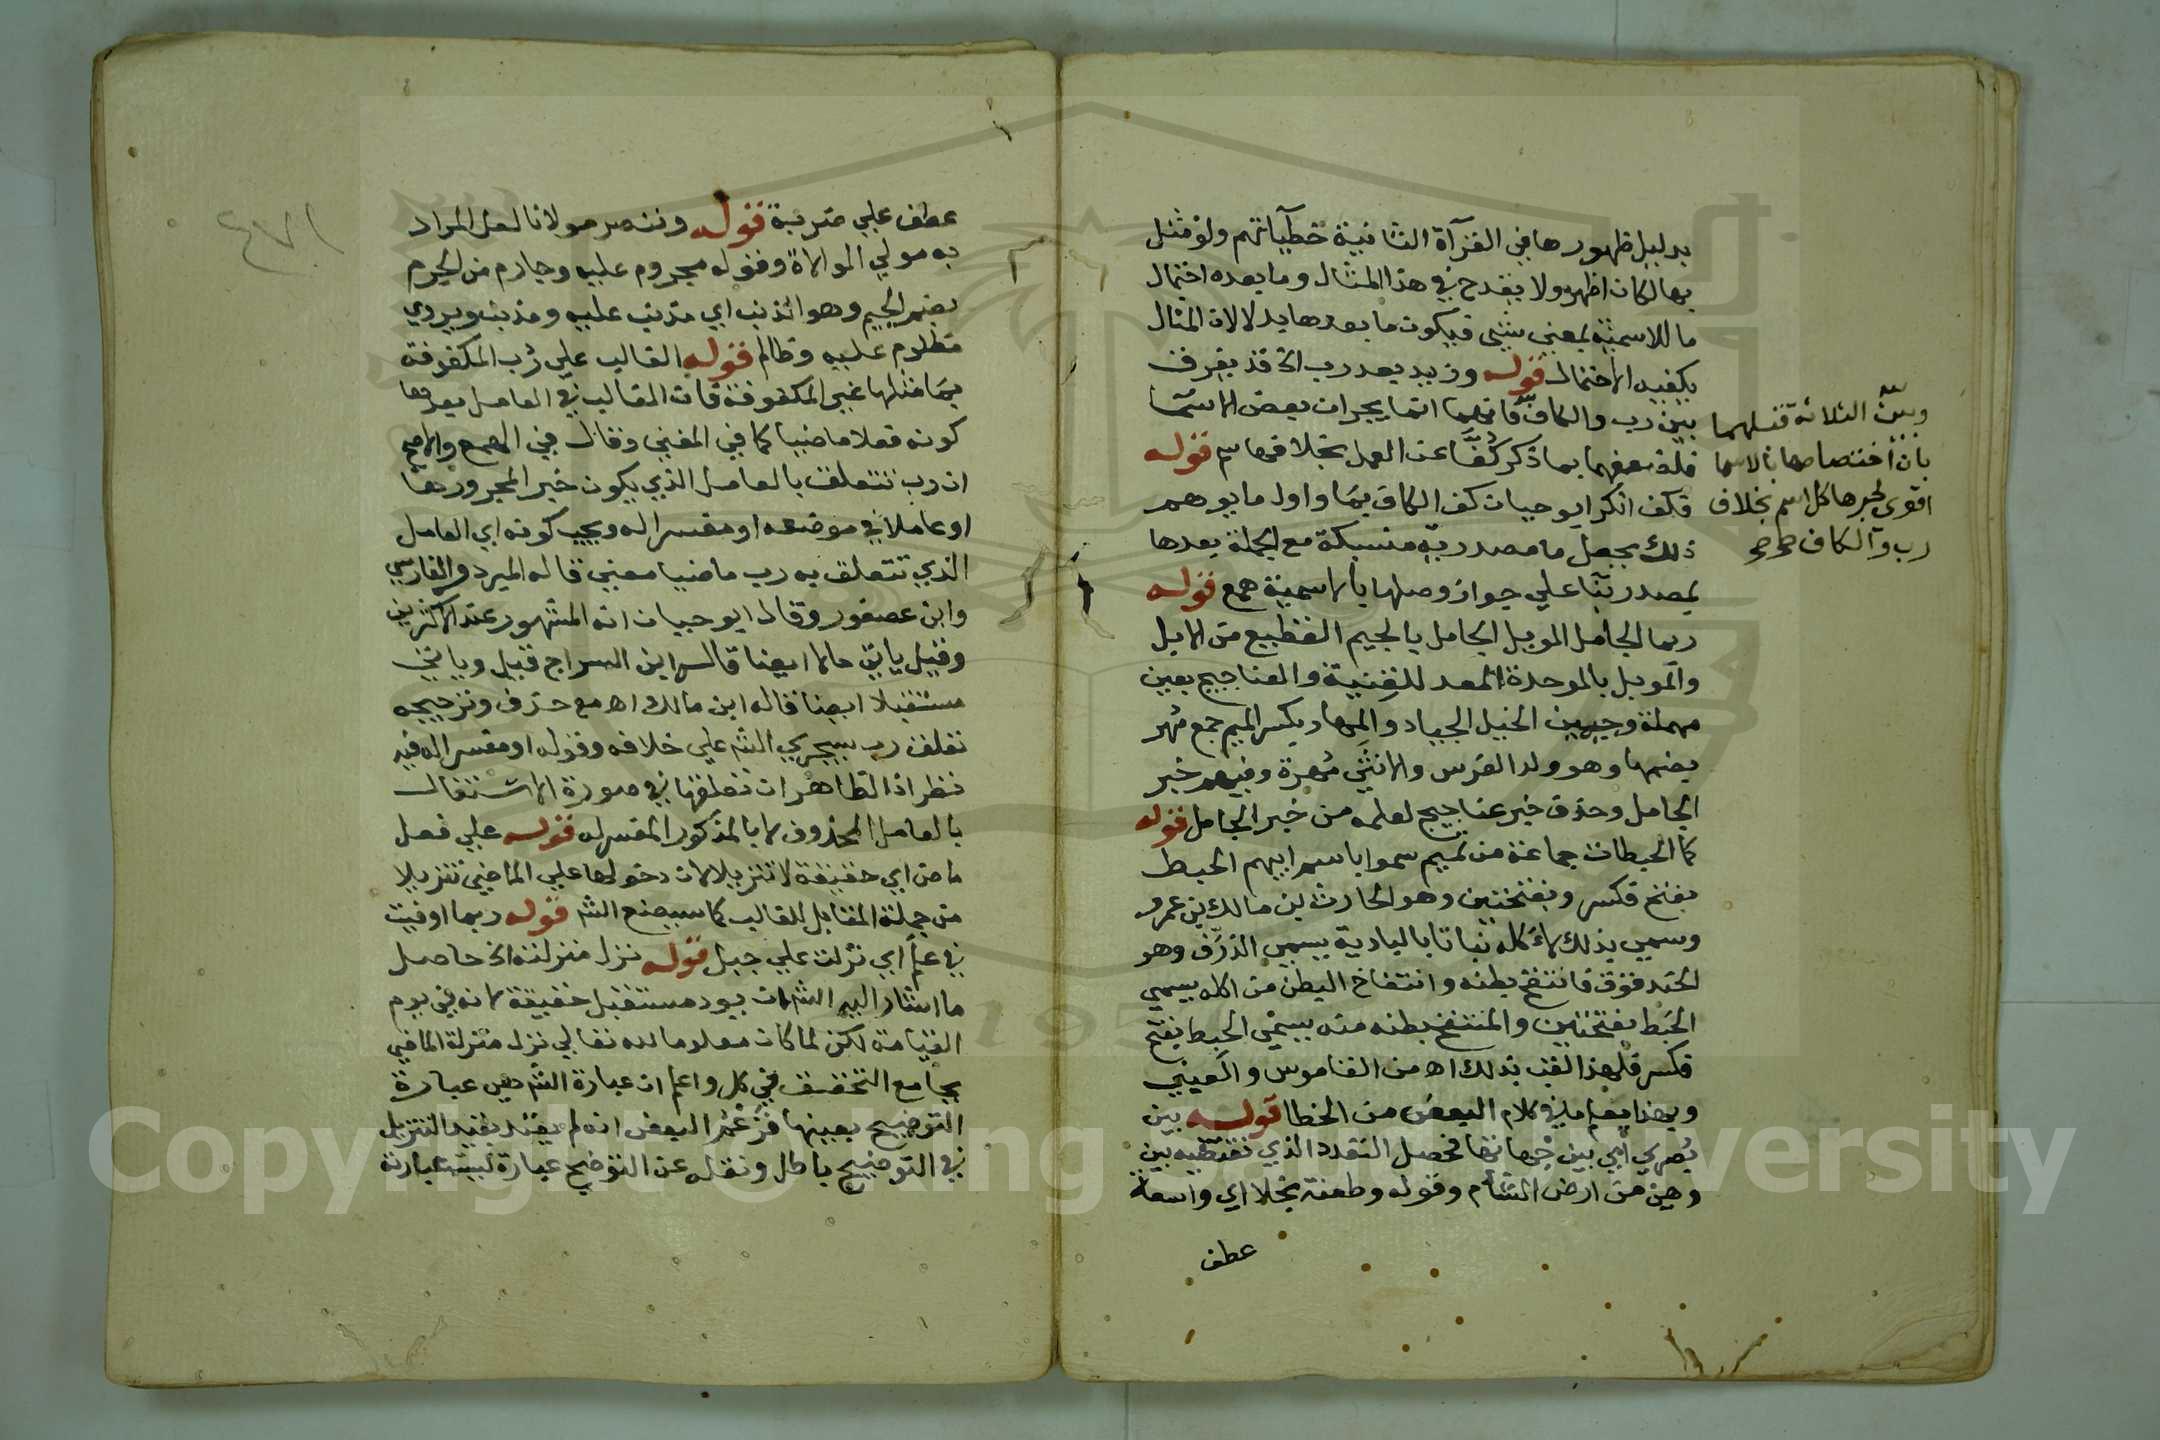 بدليل ظهورها في القرآة الثانية خطيآتهم ولو مثل
بها لكان اظهر ولا يقدح في هذا المثال وما بعده احتمال
ما للاسمية بمعنى شيء فيكون ما بعدها بدلا لان المثال
يكفيه الاحتمال قوله وزيد بعد رب الخ قد يفرق
بين رب والكاف فانهما انما يجران بعض الاسما
فلضعفهما بما ذكر كفا عن العمل بخلاف ما مر قوله
فكف انكر ابو حيان كف الكاف بما واول ما يوهم
ذلك بجعل ما مصدرية منسبكة مع الجملة بعدها
بمصدر بنا على جواز وصلها بالاسمية همع قوله
ربما الجامل الموبل الجامل بالجيم القطيع من الابل
والموبل بالموحدة المعد للقنية والعناجيج بعين
مهملة وجيمين الخيل الجياد والمهار بكسر الميم جمع مهر
بضمها وهو ولد الفرس والانثى مهرة وفيهم خبر
الجامل وحذف خبر عناجيج لعلمه من خبر الجامل قوله
كما الحبطات جماعة من تميم سموا باسم ابيهم الحبط
بفتح فكسر وبفتحتين وهو الحارث بن مالك بن عمرو
وسمي بذلك لاكله نباتا بالبادية يسمى الذرق وهو
الحندقوق فانتفخ بطنه وانتفاخ البطن من اكله يسمى
الحبط بفتحتين والمنتفخ بطنه منه يسمى الحبط بفتح
فكسر فلهذا لقب بذلك اه من القاموس والعيني
وبهذا يعلم ما في كلام البعض من الخطا قوله بين
بصرى اي بين جهاتها فحصل التعدد الذي تقتضيه بين
وهي من ارض الشام وقوله وطعنة نجلا اي واسعة
عطف
وبين الثلاثة قبلهما
بان اختصاصها بالاسما
اقوى لجرها كل اسم بخلاف
رب والكاف صح صح
عطف على ضربة قوله وننصر مولانا لعل المراد
به مولى الموالاة وقوله مجروم عليه وجارم من الجرم
بضم الجيم وهو الذنب اي مذنب عليه ومذنب ويروي
مظلوم عليه وظالم قوله الغالب على رب المكفوفة
بما مثلها غير المكفوفة فان الغالب في العامل بعدها
كونه فعلا ماضيا كما في المغني وقال في الهمع والاصح
ان رب تتعلق بالعامل الذي يكون خبر المجرورها
او عاملا في موضعه او مفسرا له ويجب كونه اي العامل
الذي تتعلق به رب ماضيا معنى قاله المبرد والفارسي
وابن عصفور وقال ابو حيان انه المشهور عند الاكثرين
وقيل ياتي حالا ايضا قاله ابن السراج قيل وياتي
مستقبلا ايضا قاله ابن مالك اه مع حذف وترجيحه
تعلق رب سيجري الش على خلافه وقوله او مفسرا له فيه
نظر اذ الظاهر ان تعلقها في صورة الاشتغال
بالعامل المحذوف لا بالمذكور المفسر له قوله على فعل
ماض اي حقيقة لا تنزيلا لان دخولها على الماضي تنزيلا
من جملة المقابل للغالب كما سيصنع الش قوله ربما اوفيت
في علم اي نزلت على جبل قوله نزل منزلته الخ حاصل
ما اشار اليه الش ان يود مستقبل حقيقة لانه في يوم
القيامة لكن لما كان معلوما لله تعالى نزل منزلة الماضي
بجامع التحقق في كل واعلم ان عبارة الش هي عبارة
التوضيح بعينها فزعم البعض انه لم يقيد بقيد التنزيل
في التوضيح باطل ونقله عن التوضيح عبارة ليست عبارته
Copyright © King Saud University